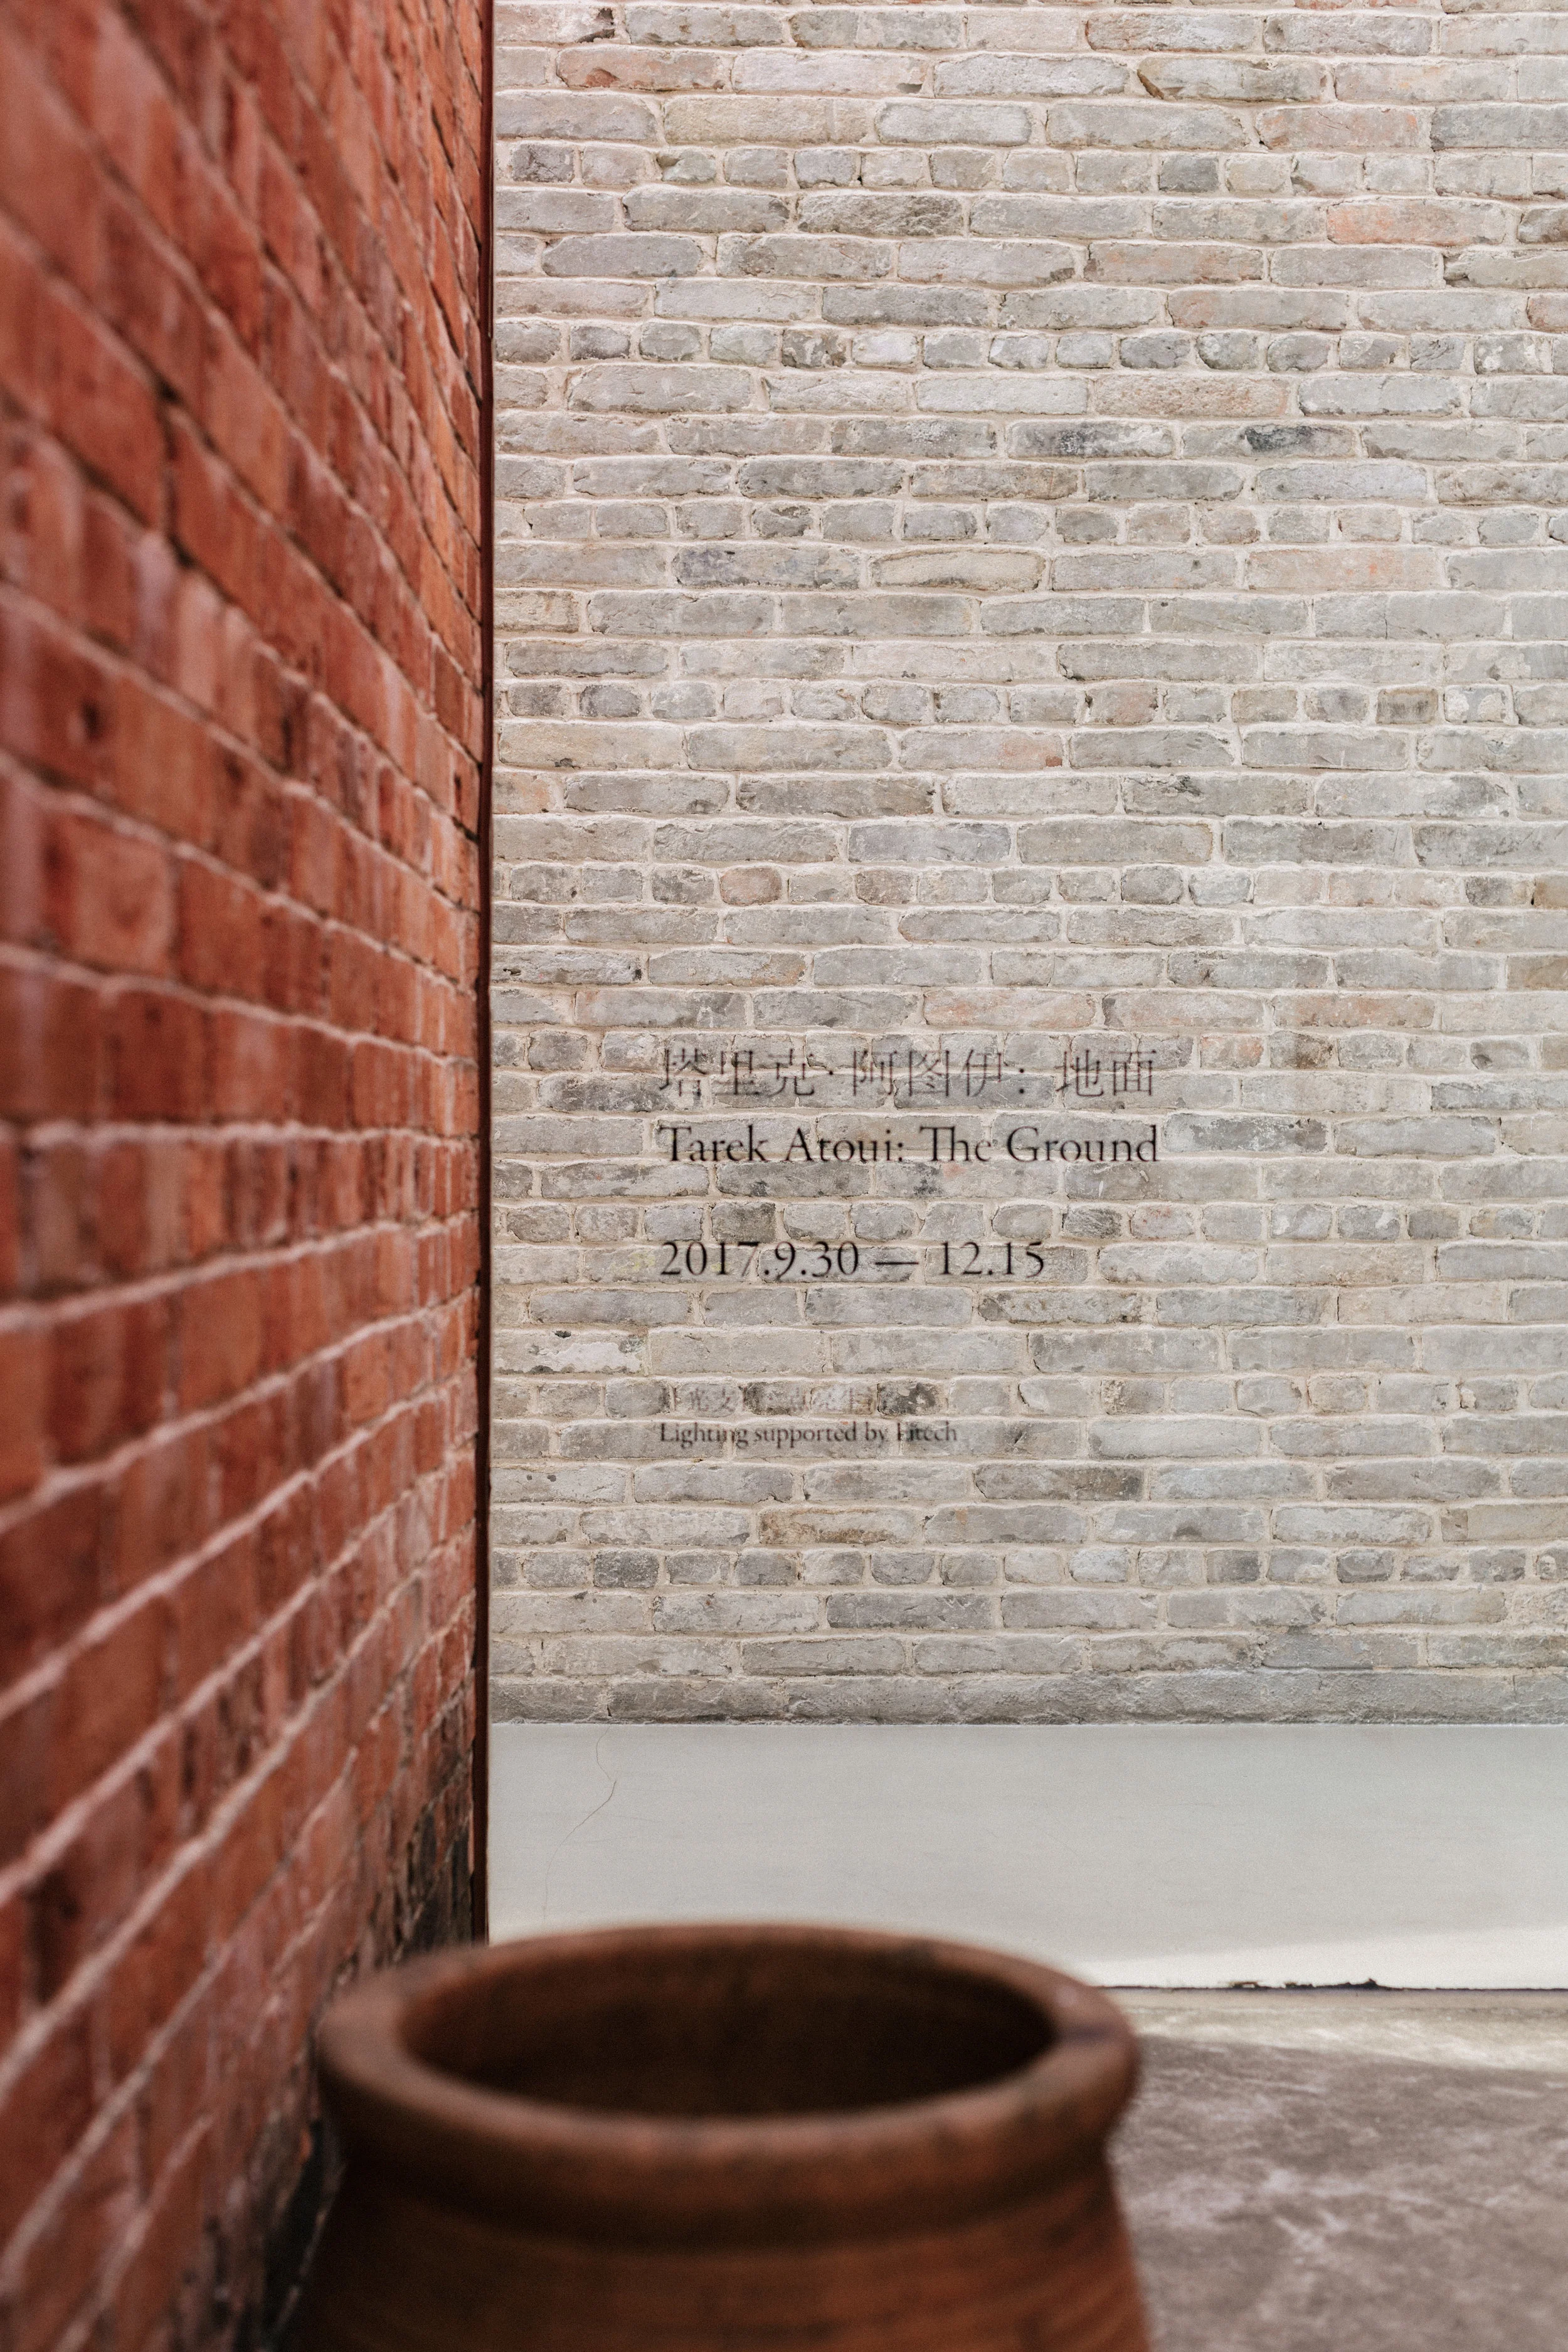 塔里克·阿图伊：地面
Tarek Atoui: The Ground
2017.9.30 — 12.15
Lighting supported by